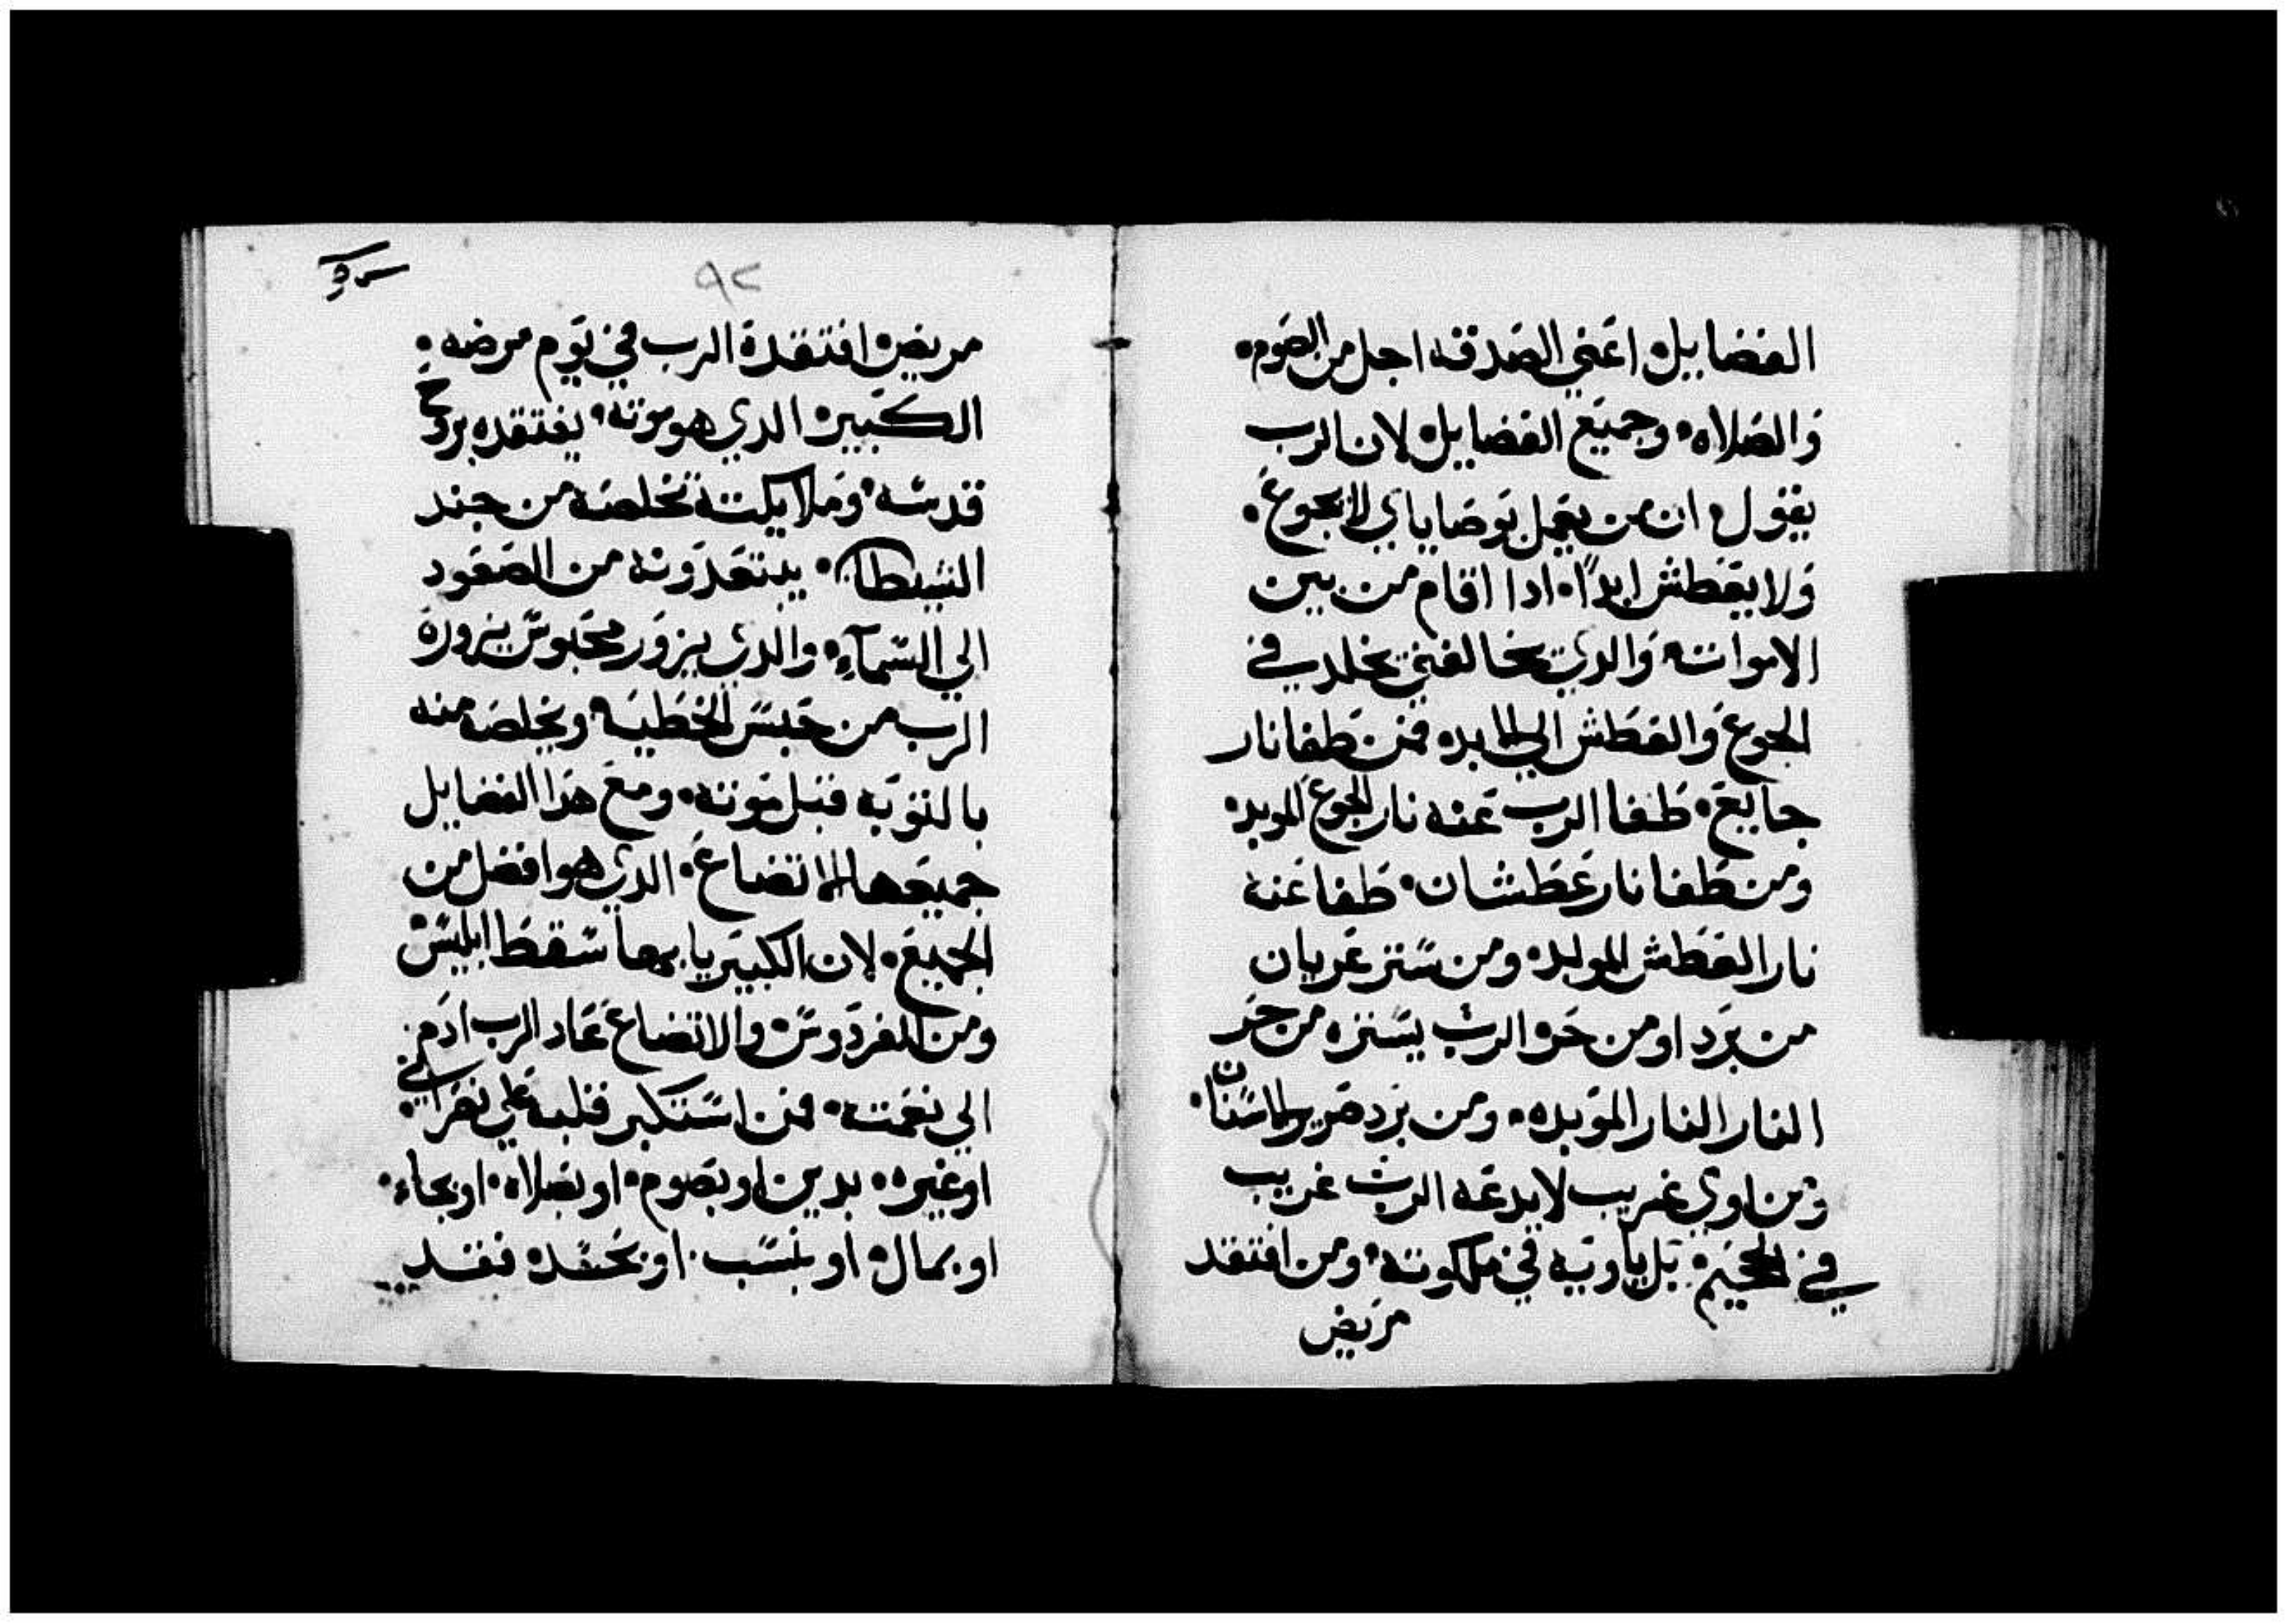 الفضايل اعني الصدقه اجل من الصوم.
والصلاه. وجميع الفضايل لان الرب
يقول ان من يعمل بوصاياي لا يجوع.
ولا يعطش ابدًا. ادا اقام من بين
الاموات والدي يخالفني يخلد في
الجوع والعطش الي الابد فمن طفا نار
جايع. طفا الرب عنه نار الجوع الموبد
ومن طفا نار عطشان. طفا عنه
نار العطش الموبد. ومن ستر عريان
من برد او من حر الرب يستره من حر
النار النار الموبده. ومن برد صرير الاسنان.
ومن اوي غريب لا يدعه الرب غريب
في الجحيم. بل ياويه في ملكوته. ومن افتقد
مريض
٩٢
مريض افتقدة الرب في يوم مرضه.
الكبير الدي هو موته. يفتقده بروح
قدسه. وملايكته تخلصه من جند
الشيطان. يبتعدونه من الصعود
الي السمآء. والدي يزور محبوس يزورة
الرب من حبس الخطيه ويخلصه منه
بالتوبه قبل موته. ومع هدا الفضايل
جميعها الاتضاع. الدي هو افضل من
الجميع. لان الكبيريا بها سقط ابليس
ومن الفردوس والاتضاع عاد الرب ادم.
الي نعمته. فمن استكبر قلبه علي نصراني.
او غيره. بدين او بصوم. او بصلاه. او بجاء.
او بمال او بنسب. او بحسده فقد